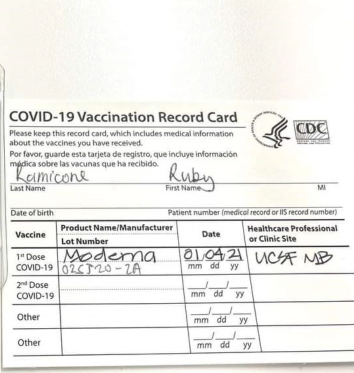 COVID-19 Vaccination Record Card
CDC
Please keep this record card, which includes medical information
about the vaccines you have received.
Por favor, guarde esta tarjeta de registro, que incluye información
médica sobre las vacunas que ha recibido.
Ramicone Ruby
Last Name First Name MI
Date of birth Patient number (medical record or IIS record number)
Vaccine Product Name/Manufacturer Date Healthcare Professional
Lot Number or Clinic Site
1st Dose Moderna 01/04/21 UCSF MB
COVID-19 025J20-2A mm dd yy
2nd Dose / /
COVID-19 mm dd yy
Other / /
mm dd yy
Other / /
mm dd yy